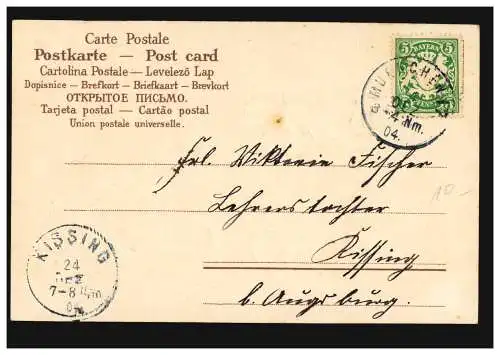 Carte Postale
Postkarte — Post card
Cartolina Postale — Levelező Lap
Dopisnice — Brefkort — Briefkaart — Brevkort
ОТКРЫТОЕ ПИСЬМО.
Tarjeta postal — Cartão postal
Union postale universelle.
5 BAYERN 5
4-Nm.
04.
Frl. Viktorie Fischer
Lehrerstochter
Kissing
b. Augsburg.
KISSING
24
DEZ
7-8